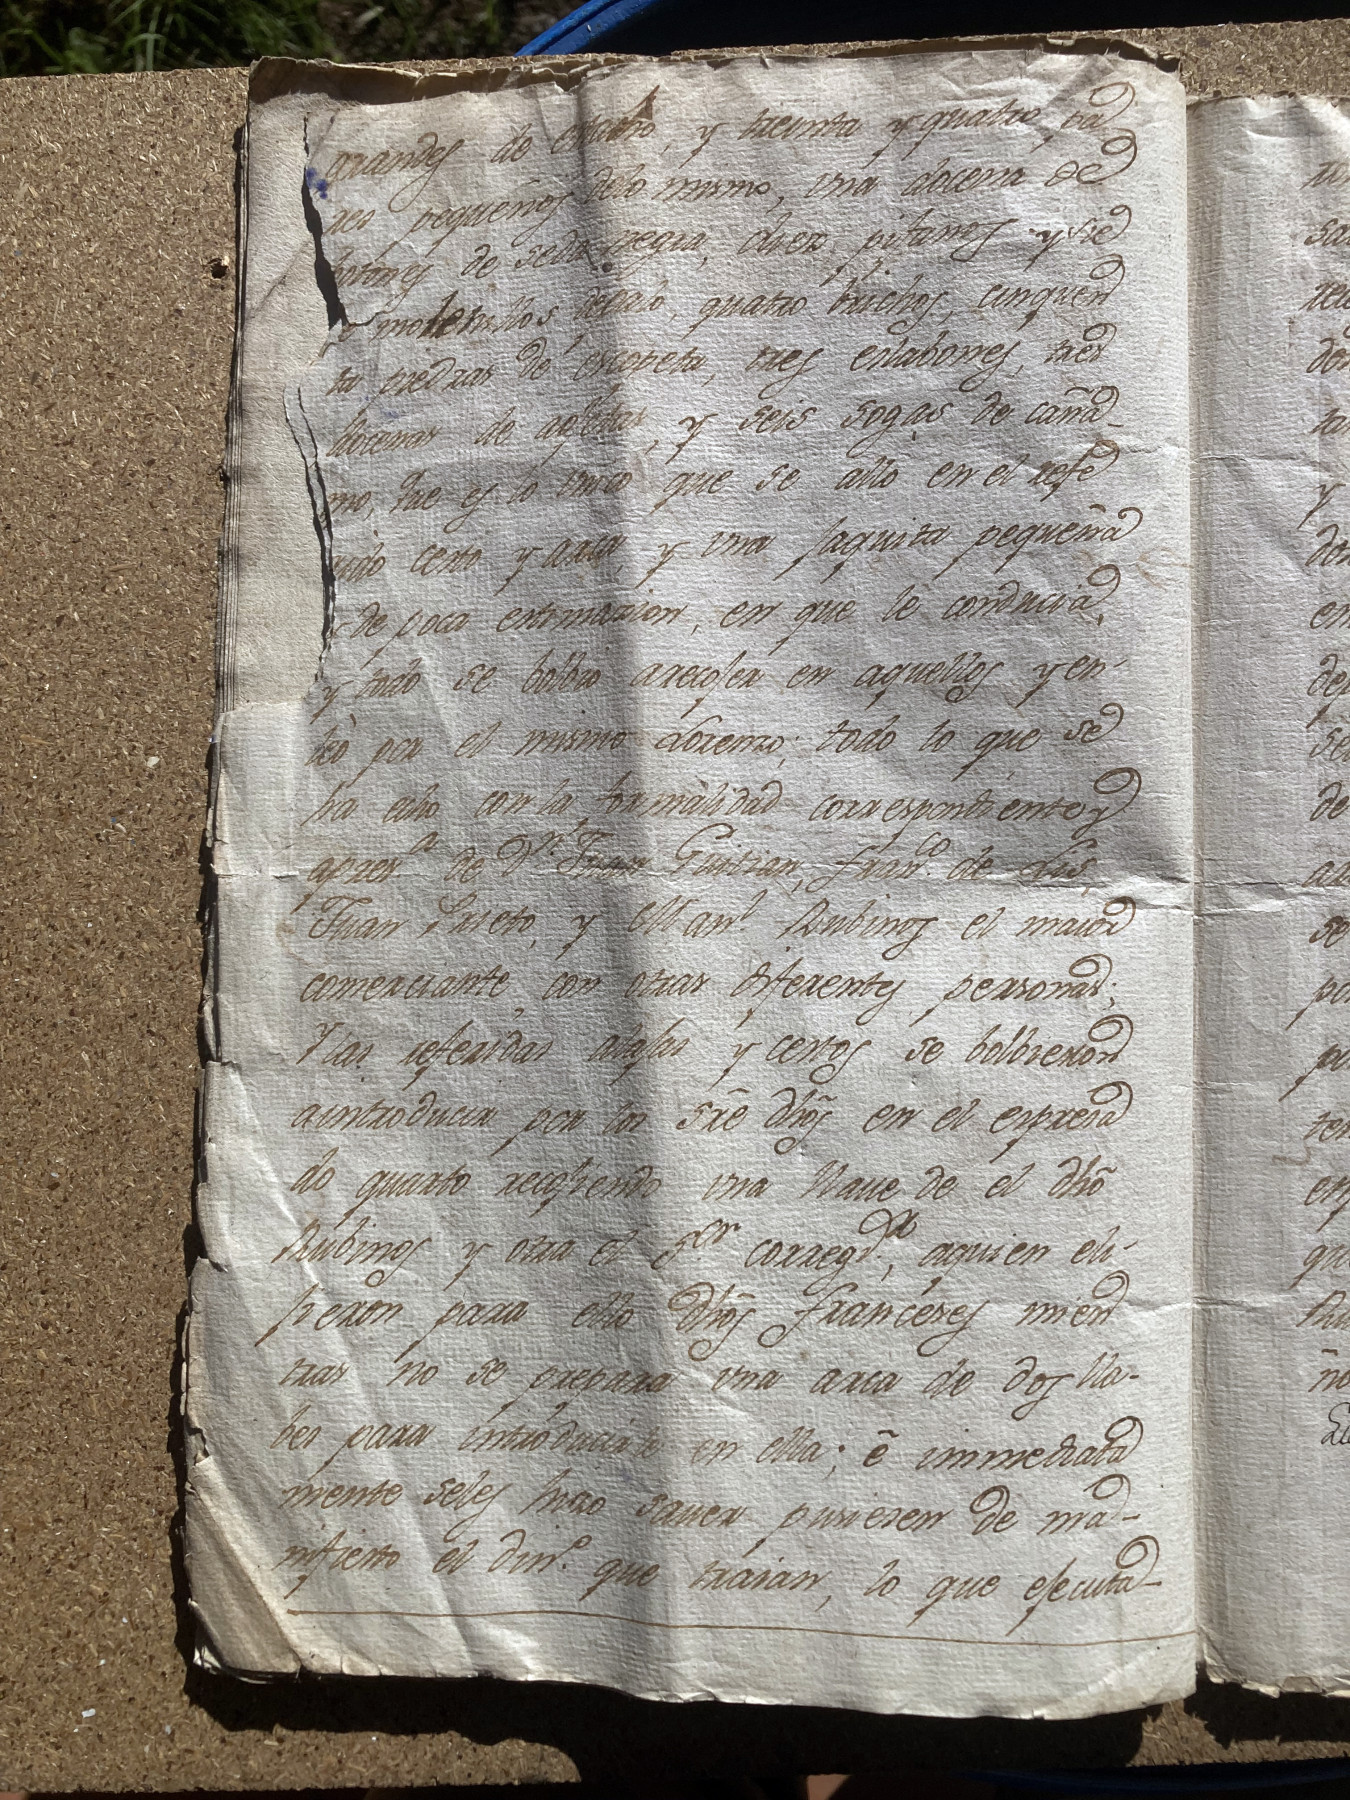 grandes de cuatro, y treinta y quatro pa
res pequeños delo mismo, una docena de
botones de seda negra, diez pitanos y sie
molenillos depalo, quatro bruchos, cinquen
ta piedras de escopeta, tres eslabones, tres
docenas de agujetas, y seis sogas de caña-
mo, que es lo unico que se allo en el refe
rido cesto y arca, y una saquita pequeña
de poca estimazion, en que le conducia,
y todo se bolbio arecojer en aquellos y en-
tró por el mismo Lorenzo; todo lo que se
ha echo con la formalidad correspondiente y
apresa de Dn Juan Guitian, Franco de
Juan Prieto, y Manl Rubinos el maior
comerciante, con otras diferentes personas;
Y las referidas arcas y cestos se bolbieron
aintroducir por los sre dhos en el expresa
do quarto recojiendo una llaue de el dho
Rubinos y otra el Sor corregdor, aquien eli-
jieron para ello dhos franceses mien
tras no se prepara una arca de dos lla-
bes para introducirlo en ella; é immediata
mente seles hizo sauer pusiesen de ma-
nifiesto el dino que traian, lo que ejecuta-